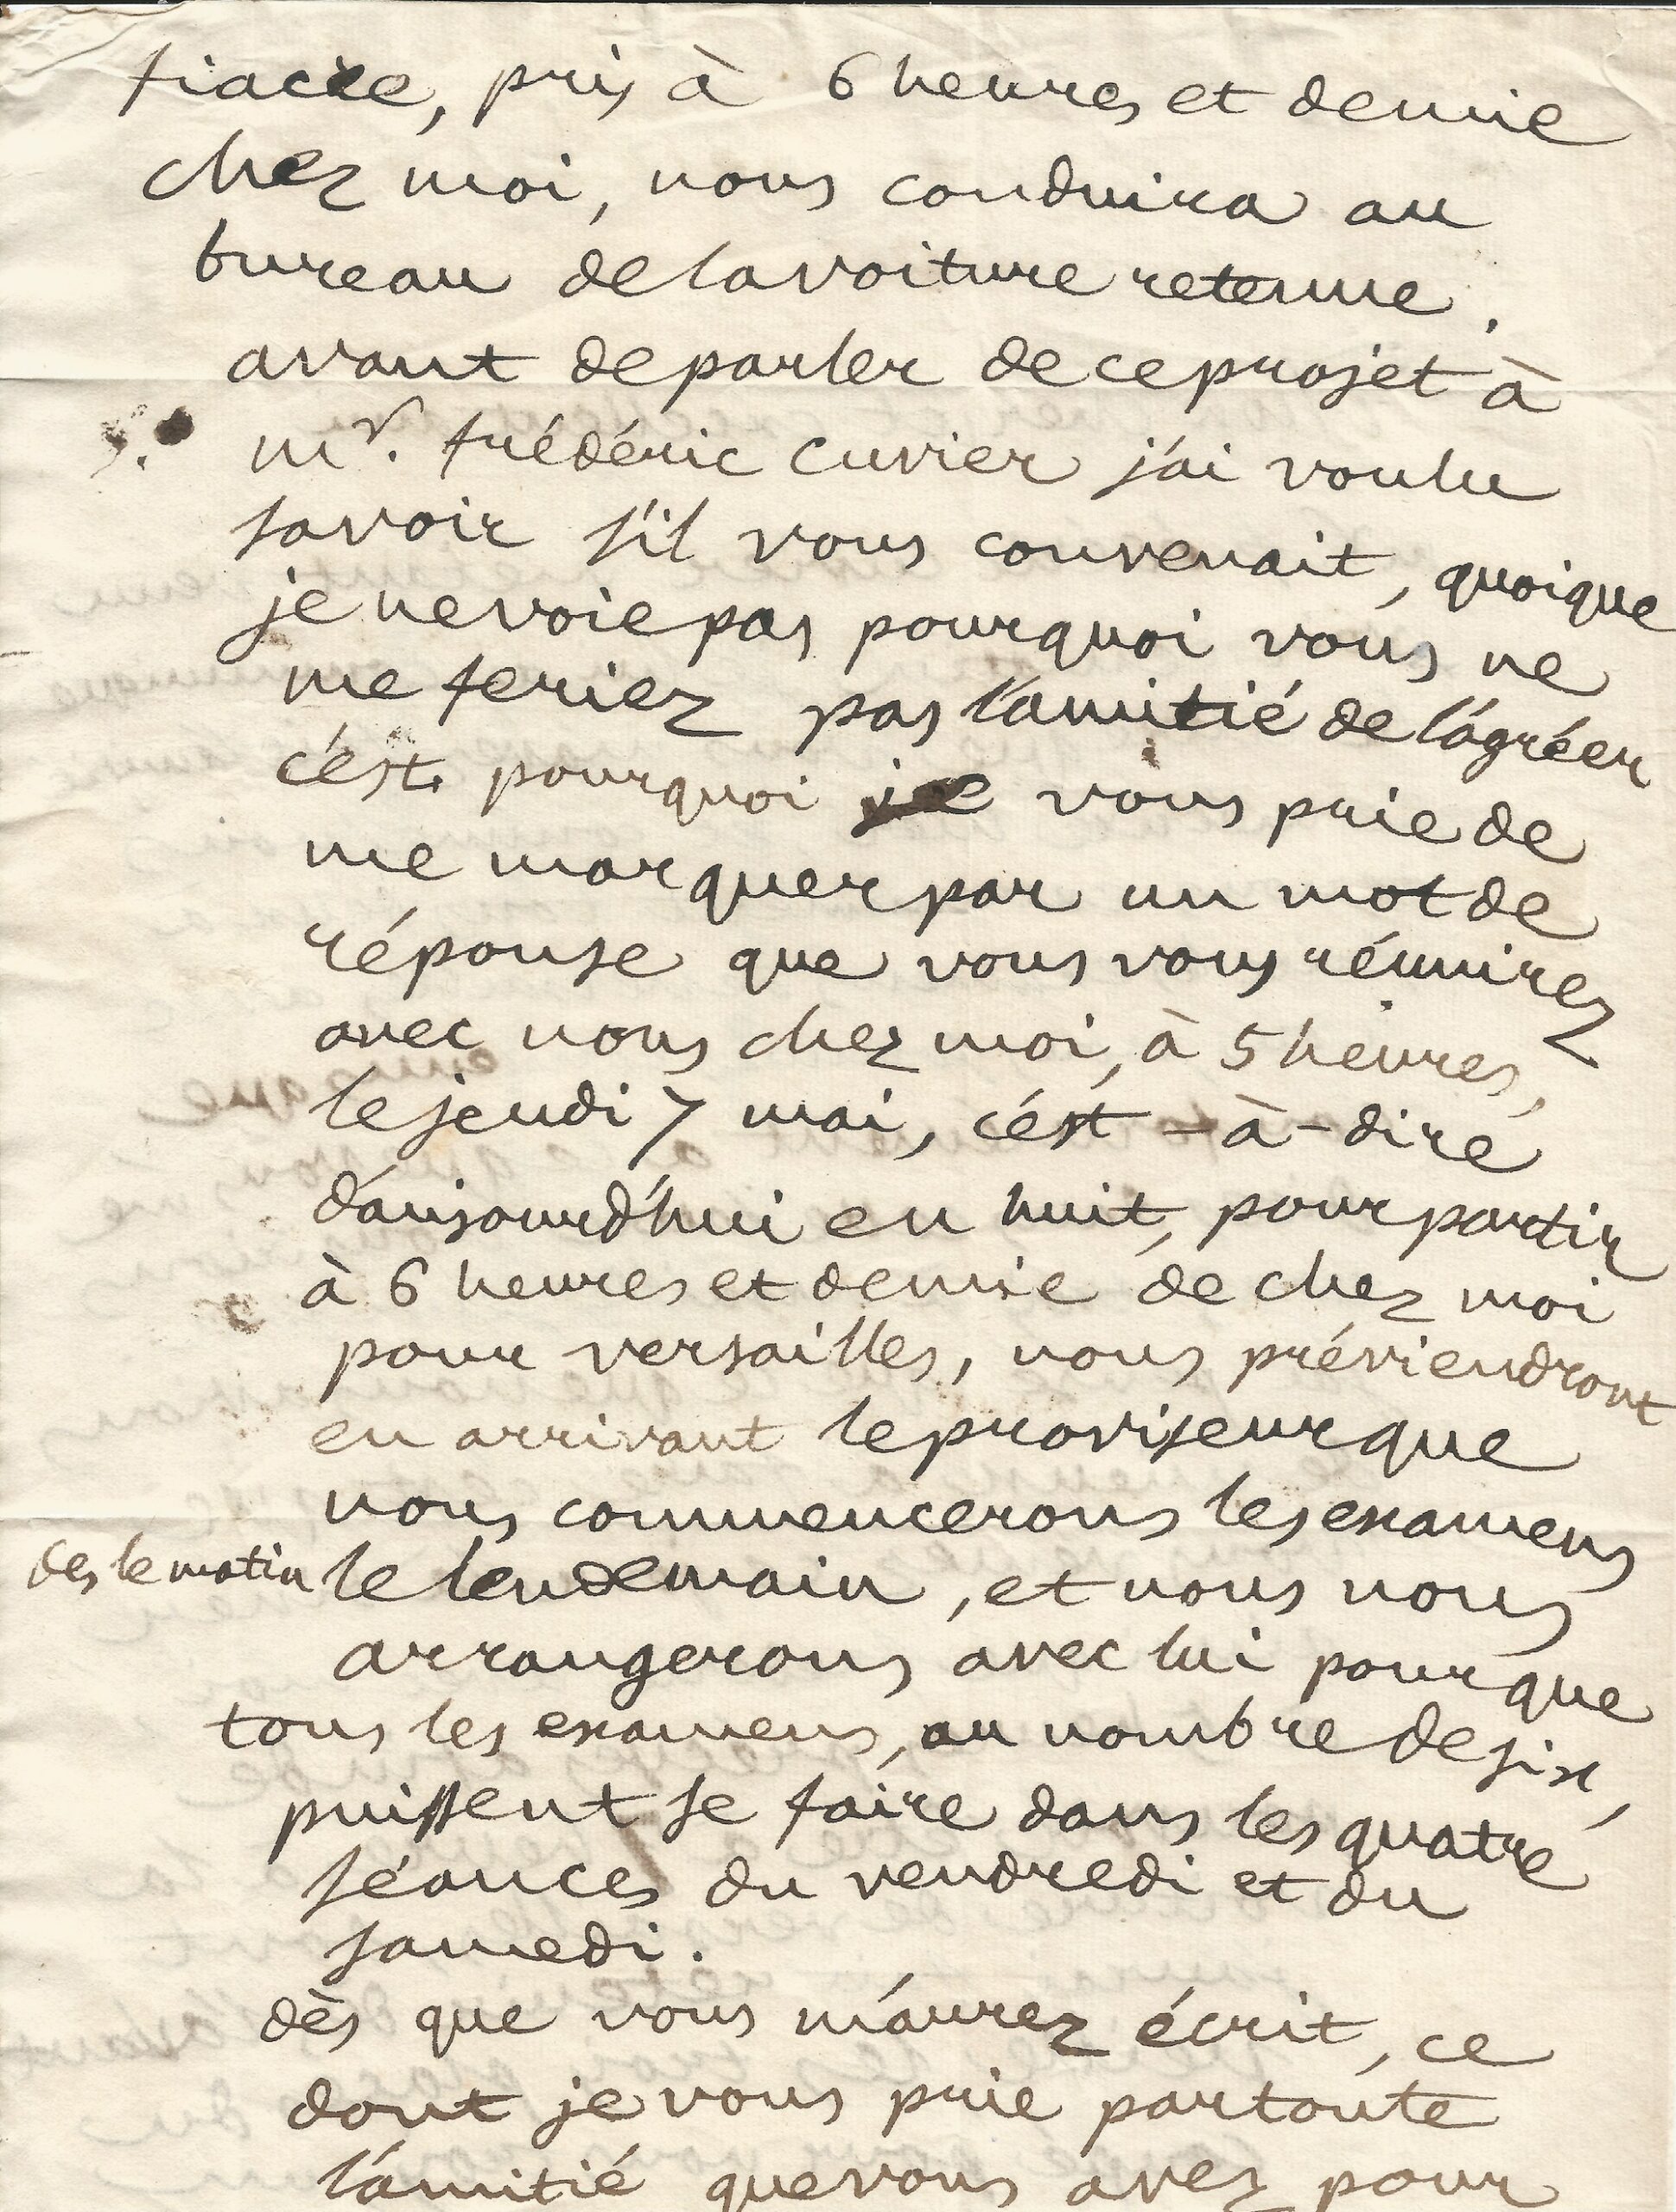 fiacre, pris à 6 heures et demie
chez moi, nous conduira au
bureau de la voiture retenue.
avant de parler de ce projet à
mr. frédéric cuvier j'ai voulu
savoir s'il vous convenait, quoique
je ne voie pas pourquoi vous ne
me feriez pas l'amitié de l'agréer
c'est pourquoi je vous prie de
me marquer par un mot de
réponse que vous vous réunirez
avec nous chez moi, à 5 heures,
le jeudi 7 mai, c'est-à-dire
d'aujourd'hui en huit, pour partir
à 6 heures et demie de chez moi
pour versailles, nous préviendront
en arrivant le proviseur que
nous commencerons les examens
des le matin le lendemain, et nous nous
arrangerons avec lui pour que
tous les examens, au nombre de six,
puissent se faire dans les quatre
séances du vendredi et du
samedi.
dès que vous m'aurez écrit, ce
dont je vous prie par toute
l'amitié que vous avez pour